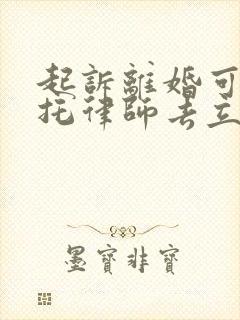 起訴離婚可
托律師去立
墨寶非寶